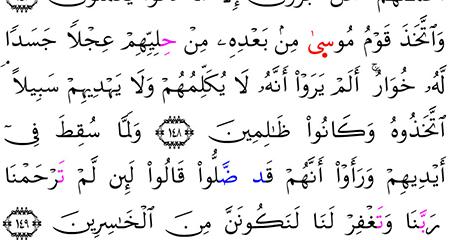 وَٱتَّخَذَ قَوْمُ مُوسىٰ مِنۢ بَعْدِهِۦ مِنْ حِلِيِّهِمْ عِجْلًا جَسَدًا
لَّهُۥ خُوَارٌ ۚ أَلَمْ يَرَوْا۟ أَنَّهُۥ لَا يُكَلِّمُهُمْ وَلَا يَهْدِيهِمْ سَبِيلًا ۘ
ٱتَّخَذُوهُ وَكَانُوا۟ ظَـٰلِمِينَ ﴿١٤٨﴾ وَلَمَّا سُقِطَ فِىٓ
أَيْدِيهِمْ وَرَأَوْا۟ أَنَّهُمْ قَد ضَّلُّوا۟ قَالُوا۟ لَئِن لَّمْ تَرْحَمْنَا
رَبَّنَا وَتَغْفِرْ لَنَا لَنَكُونَنَّ مِنَ ٱلْخَـٰسِرِينَ ﴿١٤٩﴾